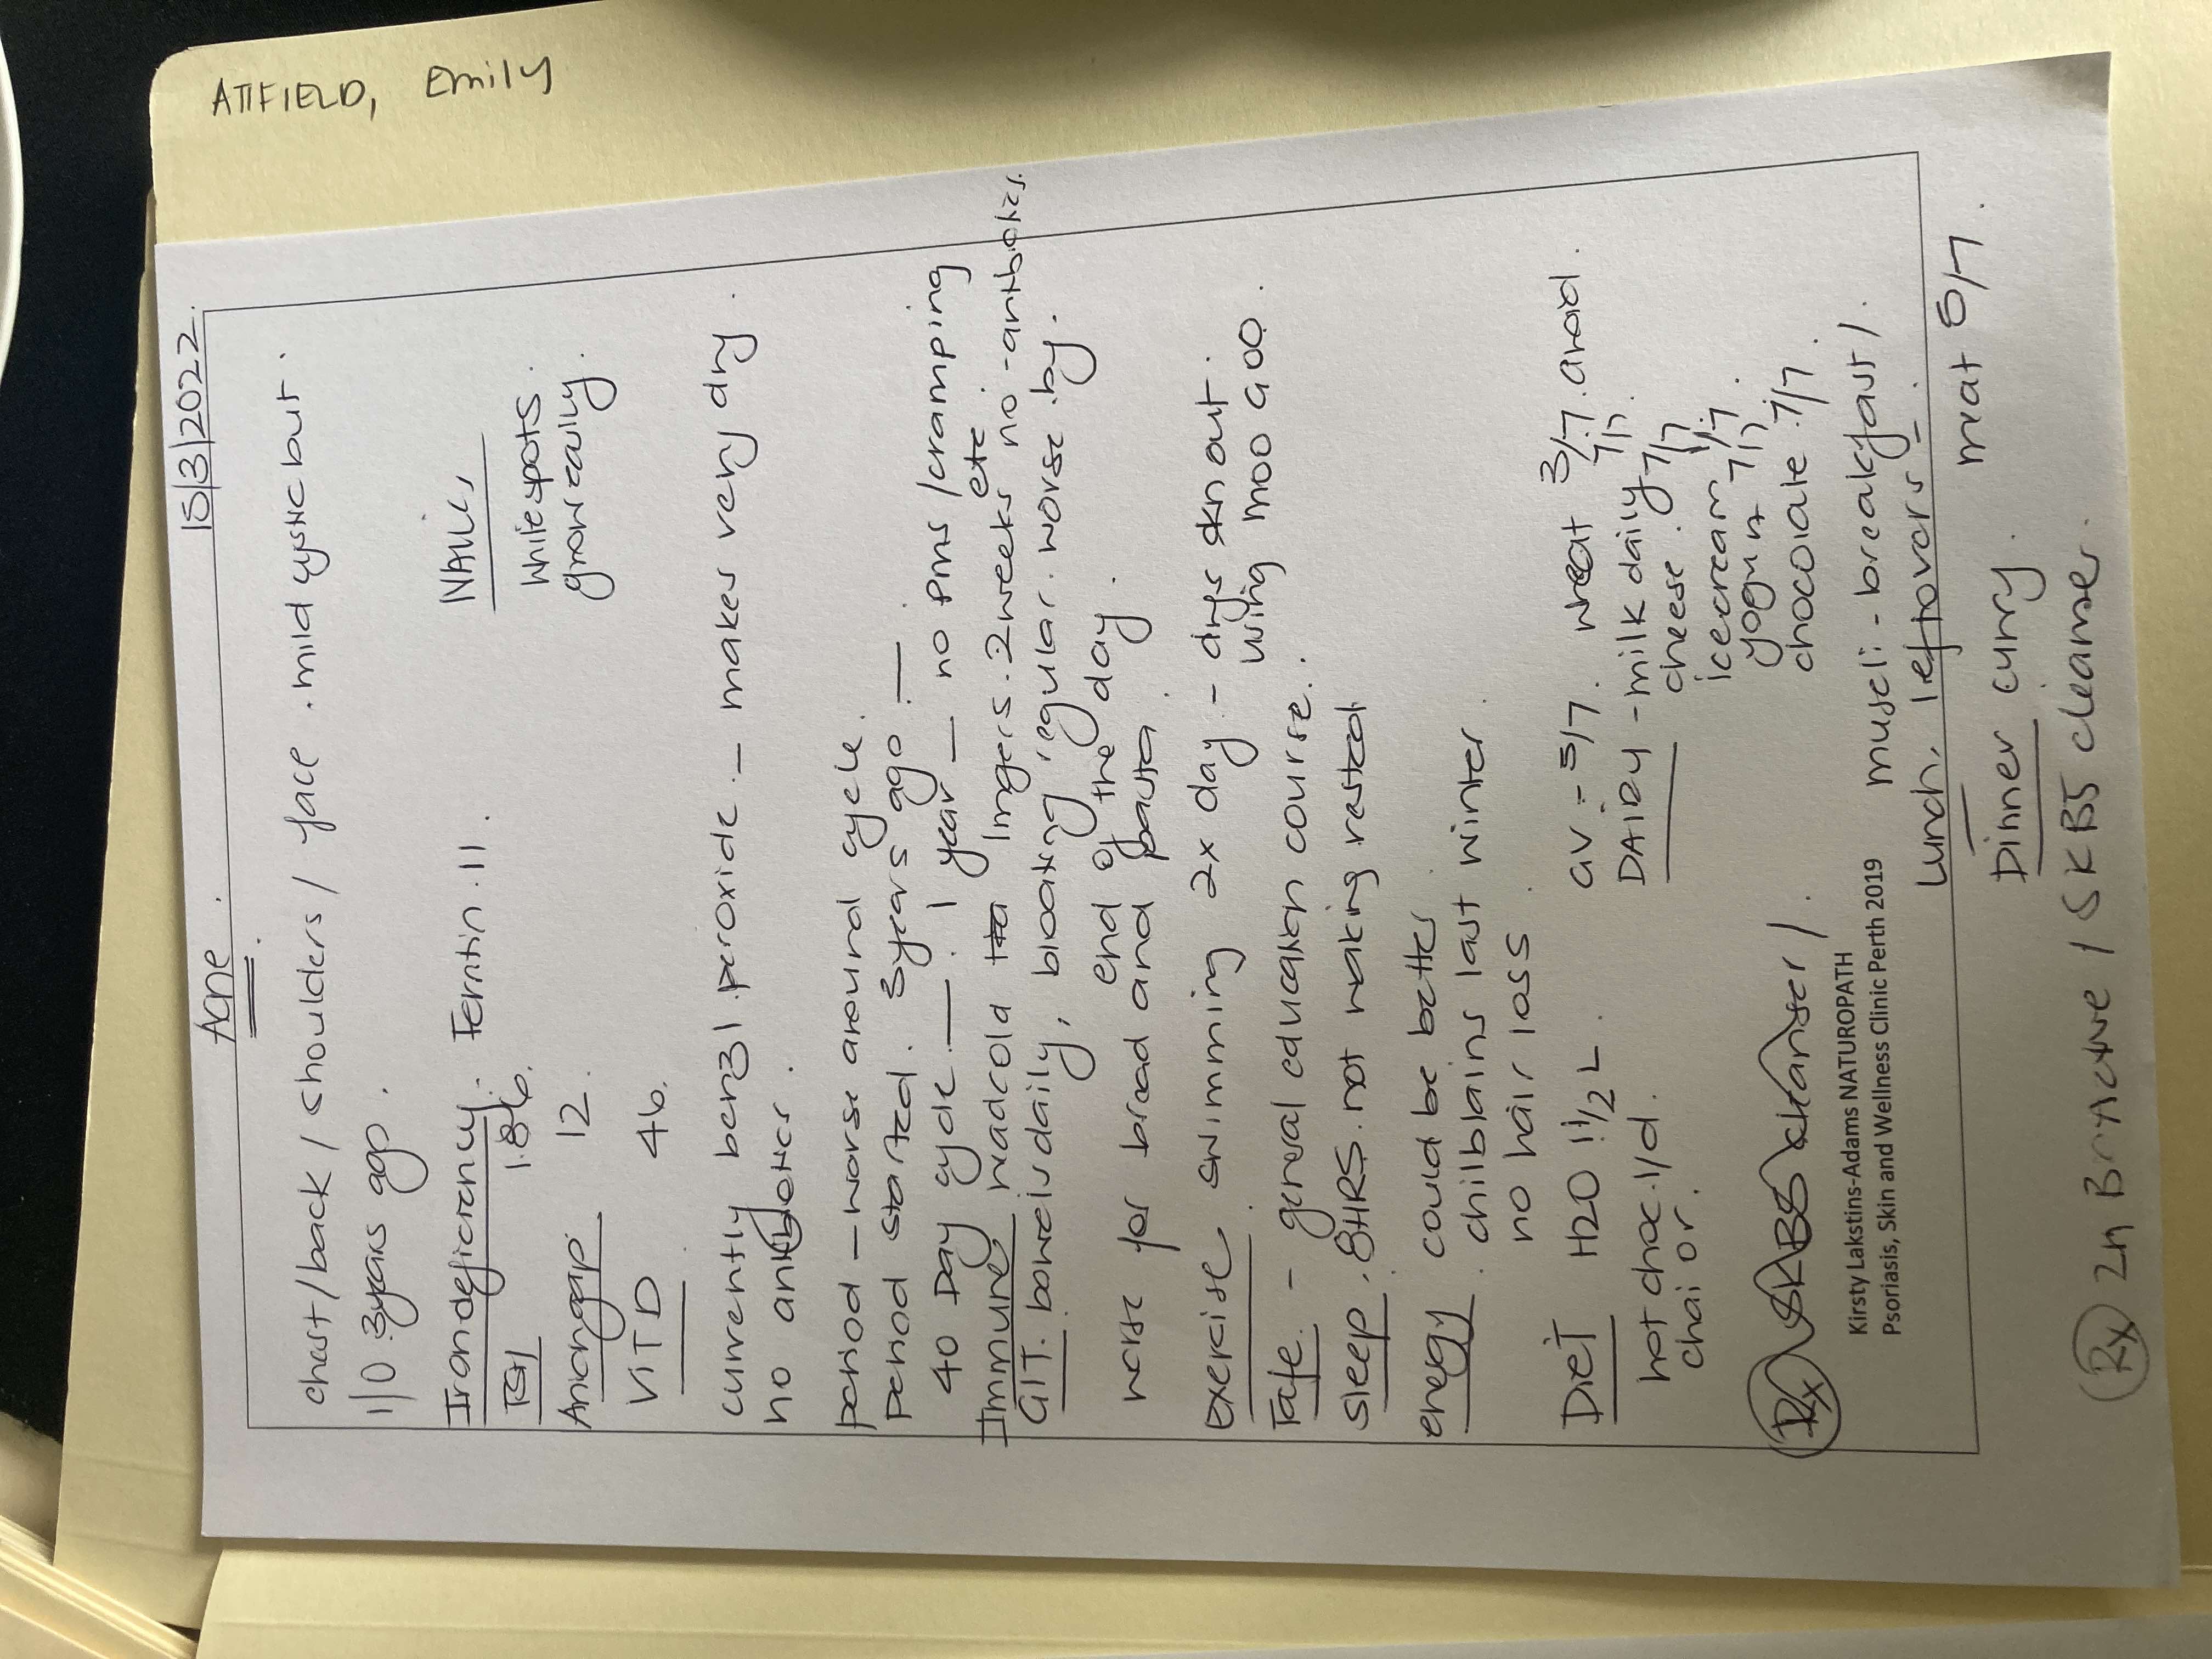 ATTFIELD, Emily
Acne. 15/3/2022.
chest/back/shoulders/face. mild cystic but.
1/0 3years ago.
Iron deficiency. Ferritin. 11.
TSH 1.86.
Aniongap. 12.
VIT D 46.
NAILS
White spots.
grow easily.
currently benzyl peroxide. - makes very dry.
no antibiotics.
period - worse around cycle.
period started. 3years ago -
40 Day cycle. - . 1 year - no pms/cramping
etc.
Immune headcold lingers. 2weeks no-antibiotics.
GIT. bowels daily, bloating regular. worse. by.
end of the day.
worse for bread and pasta.
exercise. swimming 2x day. - drys skn out.
using moo goo.
Tafe. - general education course.
sleep. 8HRS. not waking rested
energy. could be better.
chillblains last winter.
no hair loss.
DIET H2O 1 1/2 L. GV - 5/7. wheat 3/7. avoid.
hot choc. 1/d. DAIRY - milk daily 7/7.
chai or. cheese. 7/7
icecream 1/7.
yogurt 7/7.
chocolate. 7/7.
Rx SKB5 cleanser/.
museli - breakfast/.
Kirsty Lakstins-Adams NATUROPATH
Psoriasis, Skin and Wellness Clinic Perth 2019
Lunch, leftovers -
Dinner curry. meat 5/7.
Rx Zn Bractive / SKB5 cleanser.